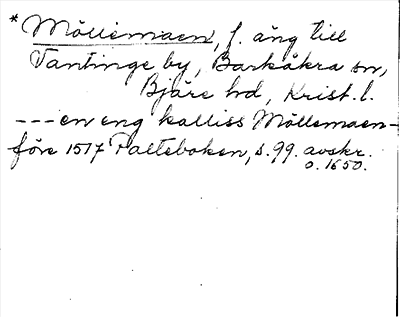 * Möllemaen, f. äng till
Tantinge by, Barkåkra sn,
Bjäre hd, Krist. l.
--- en eng kalliss Möllemaen -
före 1517 Palteboken, s. 99. avskr.
o. 1650.